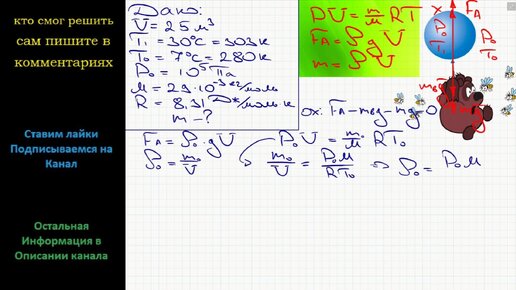 кто смог решить
сам пишите в
комментариях
Ставим лайки
Подписываемся на
Канал
Остальная
Информация в
Описании канала
Дано:
V = 25 м³
T₁ = 30°C = 303 K
T₀ = 7°C = 280 K
P₀ = 10⁵ Па
M = 29·10⁻³ кг/моль
R = 8,31 Дж/моль·K
m - ?
PV = m/M RT
F_A = ρgV
m = ρV
x
F_A
P₀
T₁
P₀
T₀
m_вg
mg
ox: F_A - m_вg - mg = 0
F_A = ρ₀·gV
P₀V = m₀/M RT₀
ρ₀ = m₀/V
m₀/V = P₀M/RT₀ => ρ₀ = P₀M